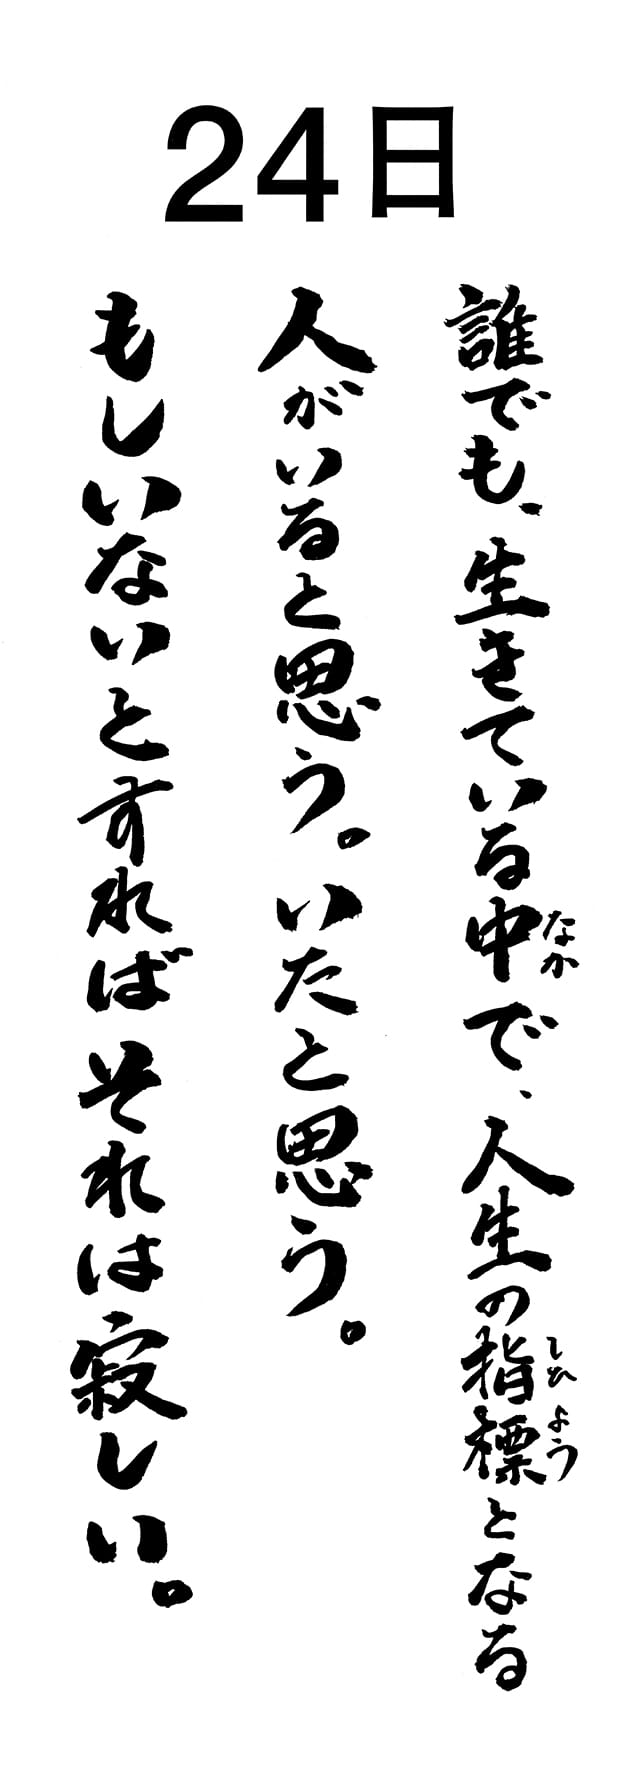 24日
誰でも、生きている中で、人生の指標となる
なか
しひょう
人がいると思う。いたと思う。
もしいないとすればそれは寂しい。